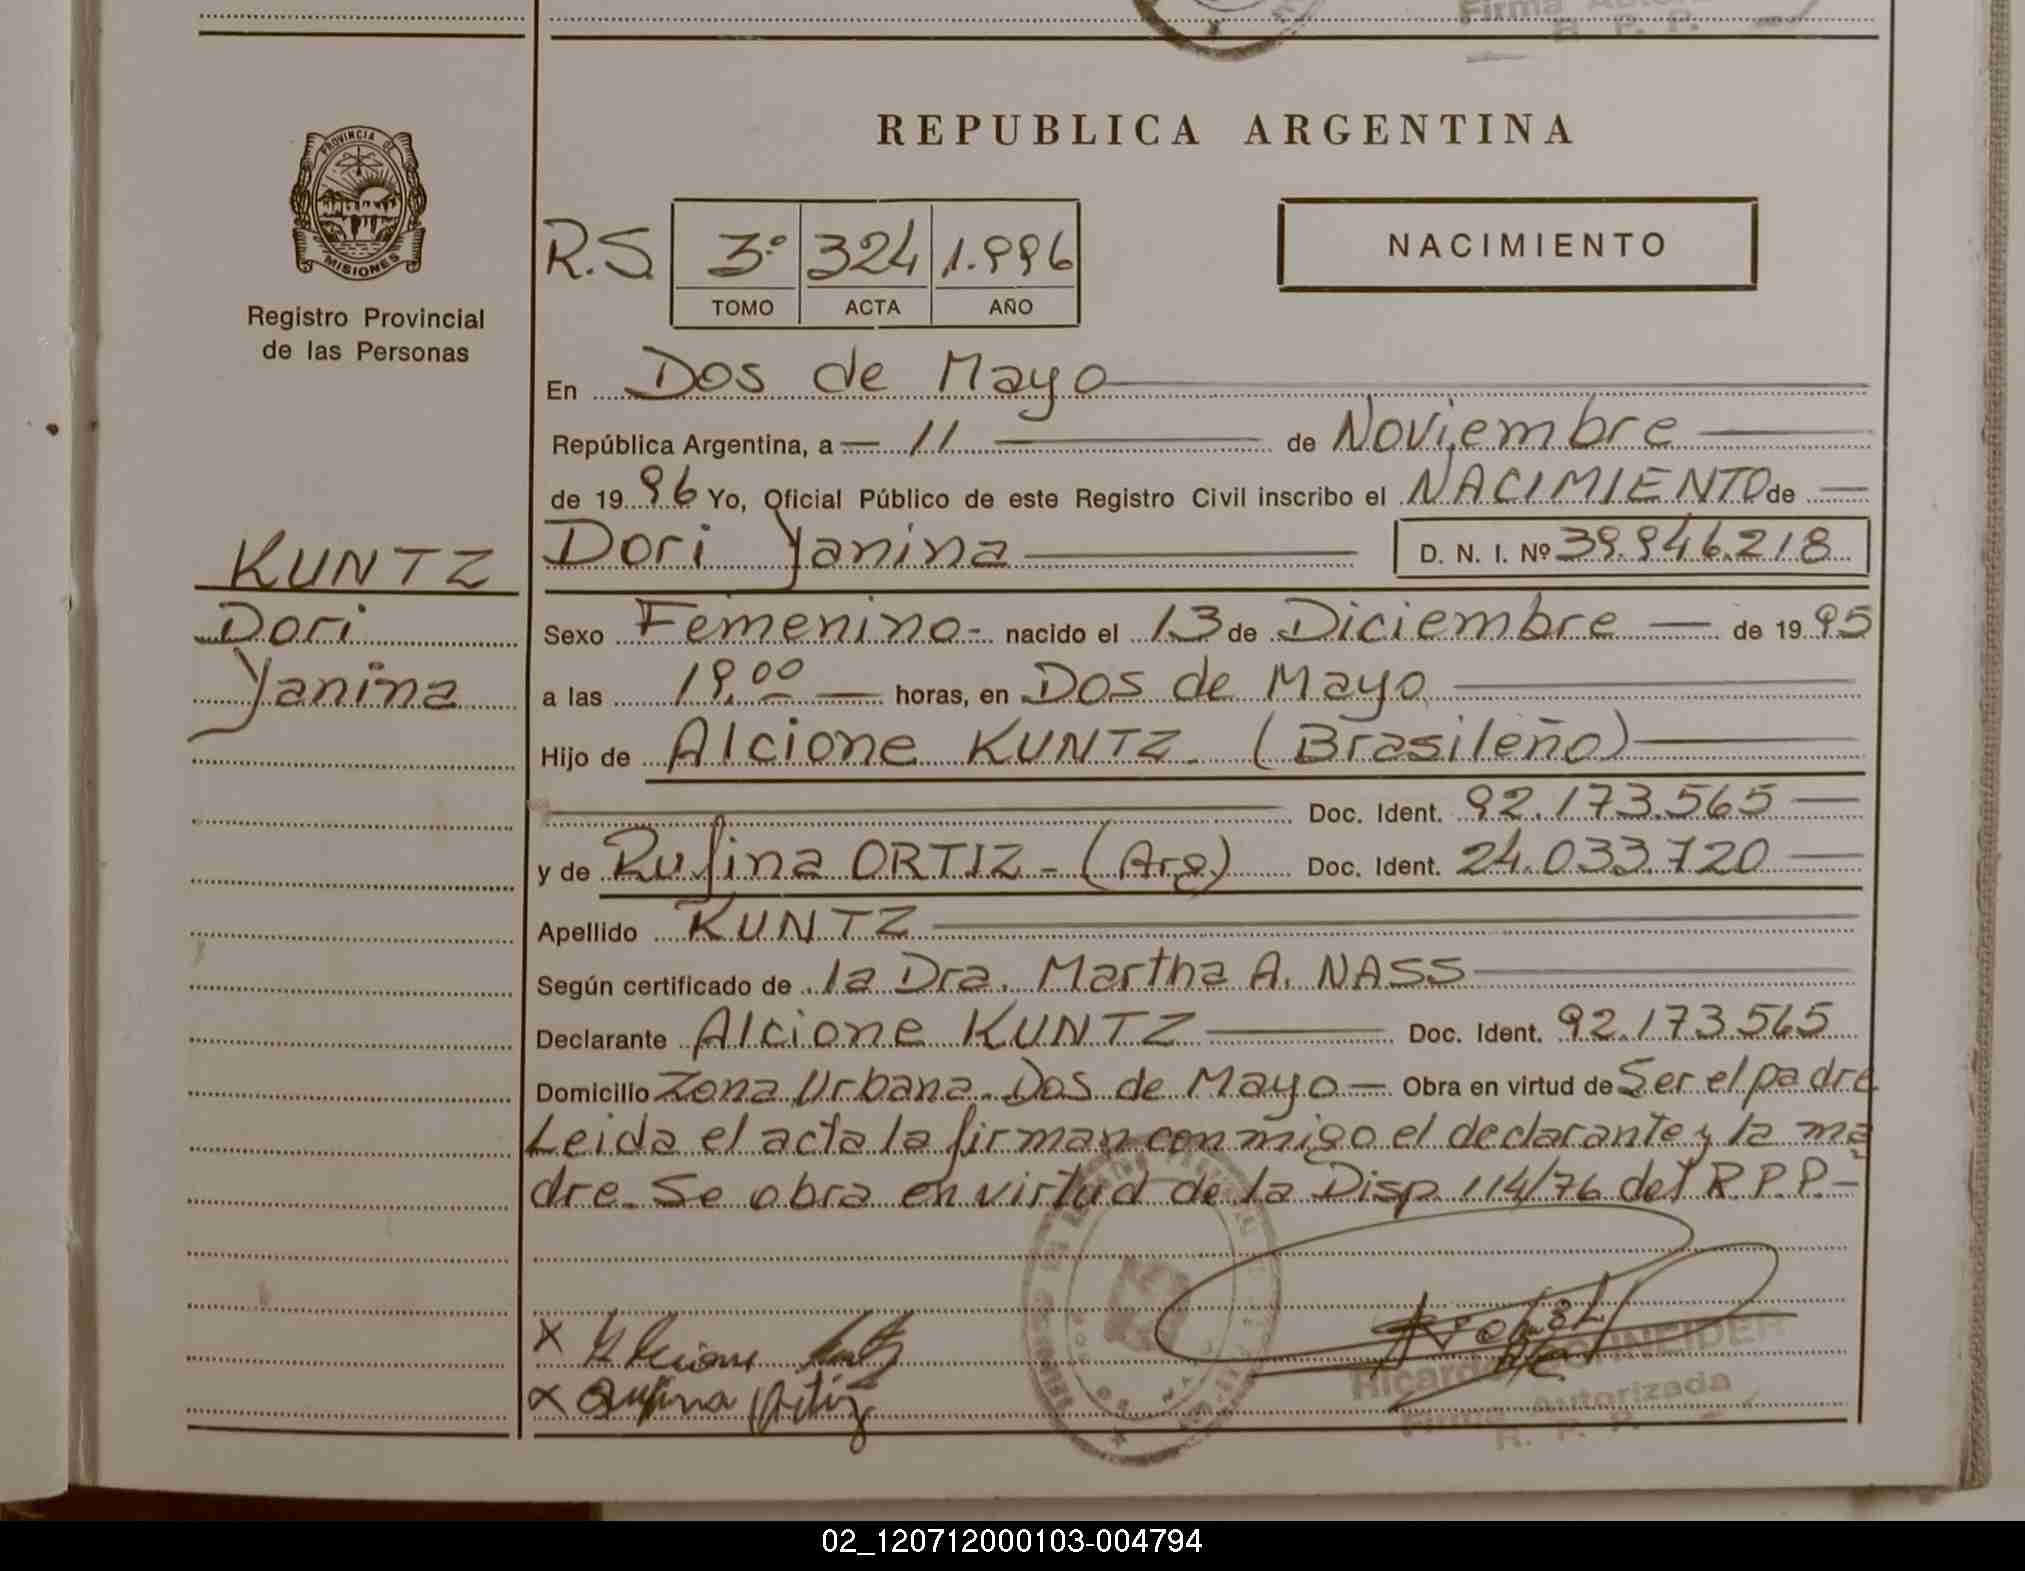 Firma
R. P. P.
REPUBLICA ARGENTINA
PROVINCIA DE
MISIONES
Registro Provincial
de las Personas
R.S. 3º 324 1.996
TOMO ACTA AÑO
NACIMIENTO
En Dos de Mayo
República Argentina, a 11 de Noviembre
de 1996 Yo, Oficial Público de este Registro Civil inscribo el NACIMIENTO de
Dori Yanina D. N. I. Nº 39.946.218
KUNTZ
Dori
Yanina
Sexo Femenino- nacido el 13 de Diciembre de 1995
a las 19.00 horas, en Dos de Mayo
Hijo de Alcione KUNTZ. (Brasileño)
Doc. Ident. 92.173.565
y de Rufina ORTIZ - (Arg) Doc. Ident. 24.033.720
Apellido KUNTZ
Según certificado de la Dra. Martha A. NASS
Declarante Alcione KUNTZ Doc. Ident. 92.173.565
Domicilio Zona Urbana. Dos de Mayo Obra en virtud de Ser el padre
Leida el acta la firman conmigo el declarante y la ma
dre. Se obra en virtud de la Disp 114/76 del R.P.P.-
x Alcione Kuntz
x Rufina Ortiz
Ricardo SCHNEIDER
Firma Autorizada
R. P. P.
02_120712000103-004794